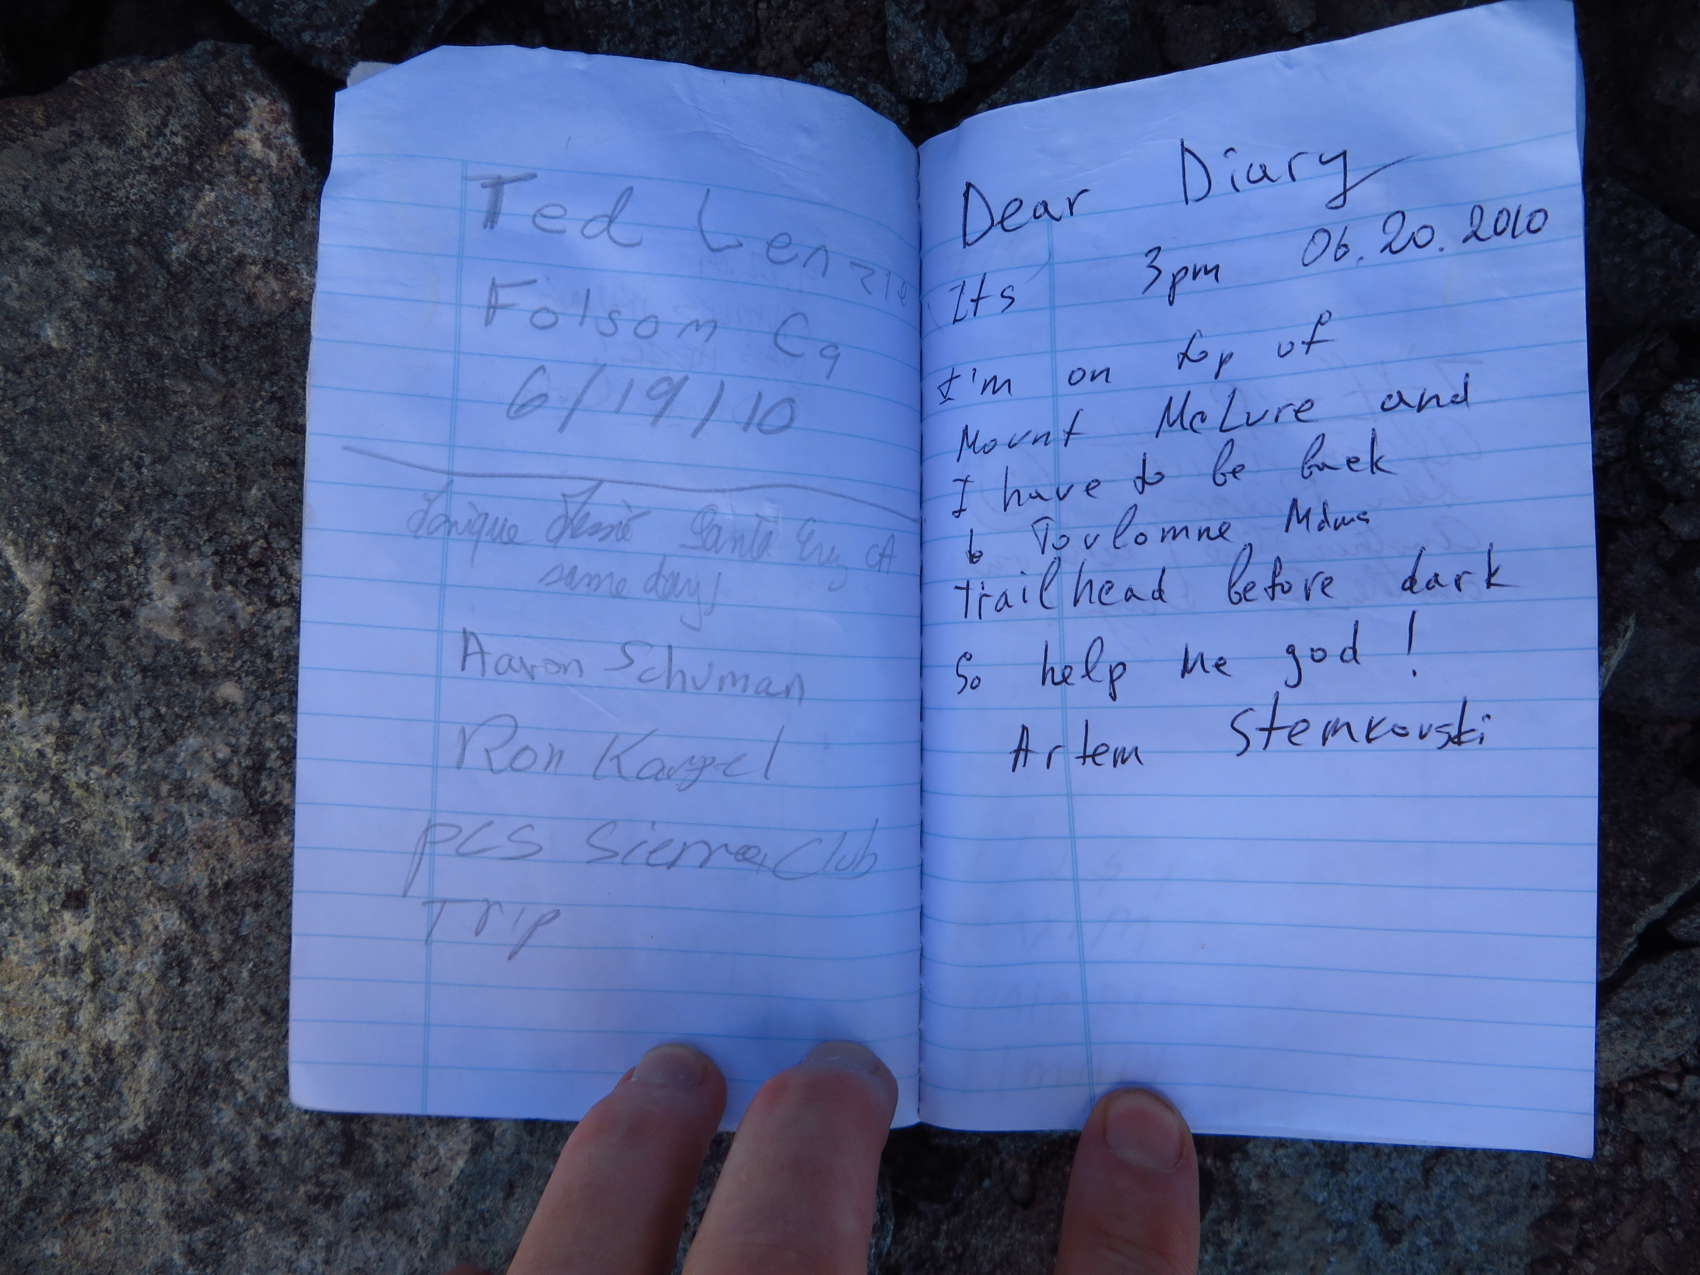 Ted Lenzie
Folsom Ca
6/19/10
Santa Cruz CA
same day!
Aaron Schuman
Ron Karpel
PCS Sierra Club
Trip
Dear Diary
Its 3pm 06.20.2010
I'm on top of
Mount McLure and
I have to be back
to Toulomne Mdws
trailhead before dark
So help me god!
Artem Stemkovski